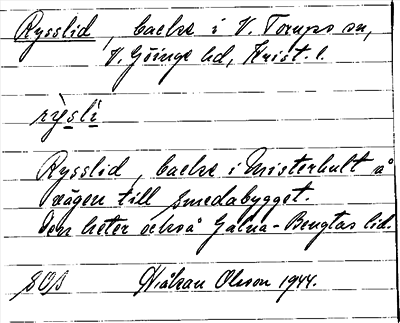 Rysslid, backe i V. Torups sn,
V. Göinge hd, Krist. l.
rỳsli
Rysslid, backe i Misterhult å
vägen till Smedabygget.
Den heter också Galna-Bengtas lid.
Håkan Olsson 1944.